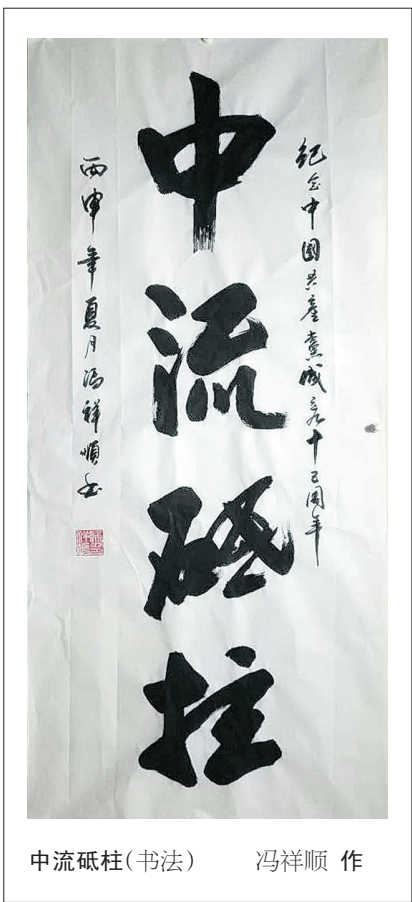 紀念中國共產黨成立九十五周年
中流砥柱
丙申年夏月馮祥順書
中流砥柱(书法) 冯祥顺 作